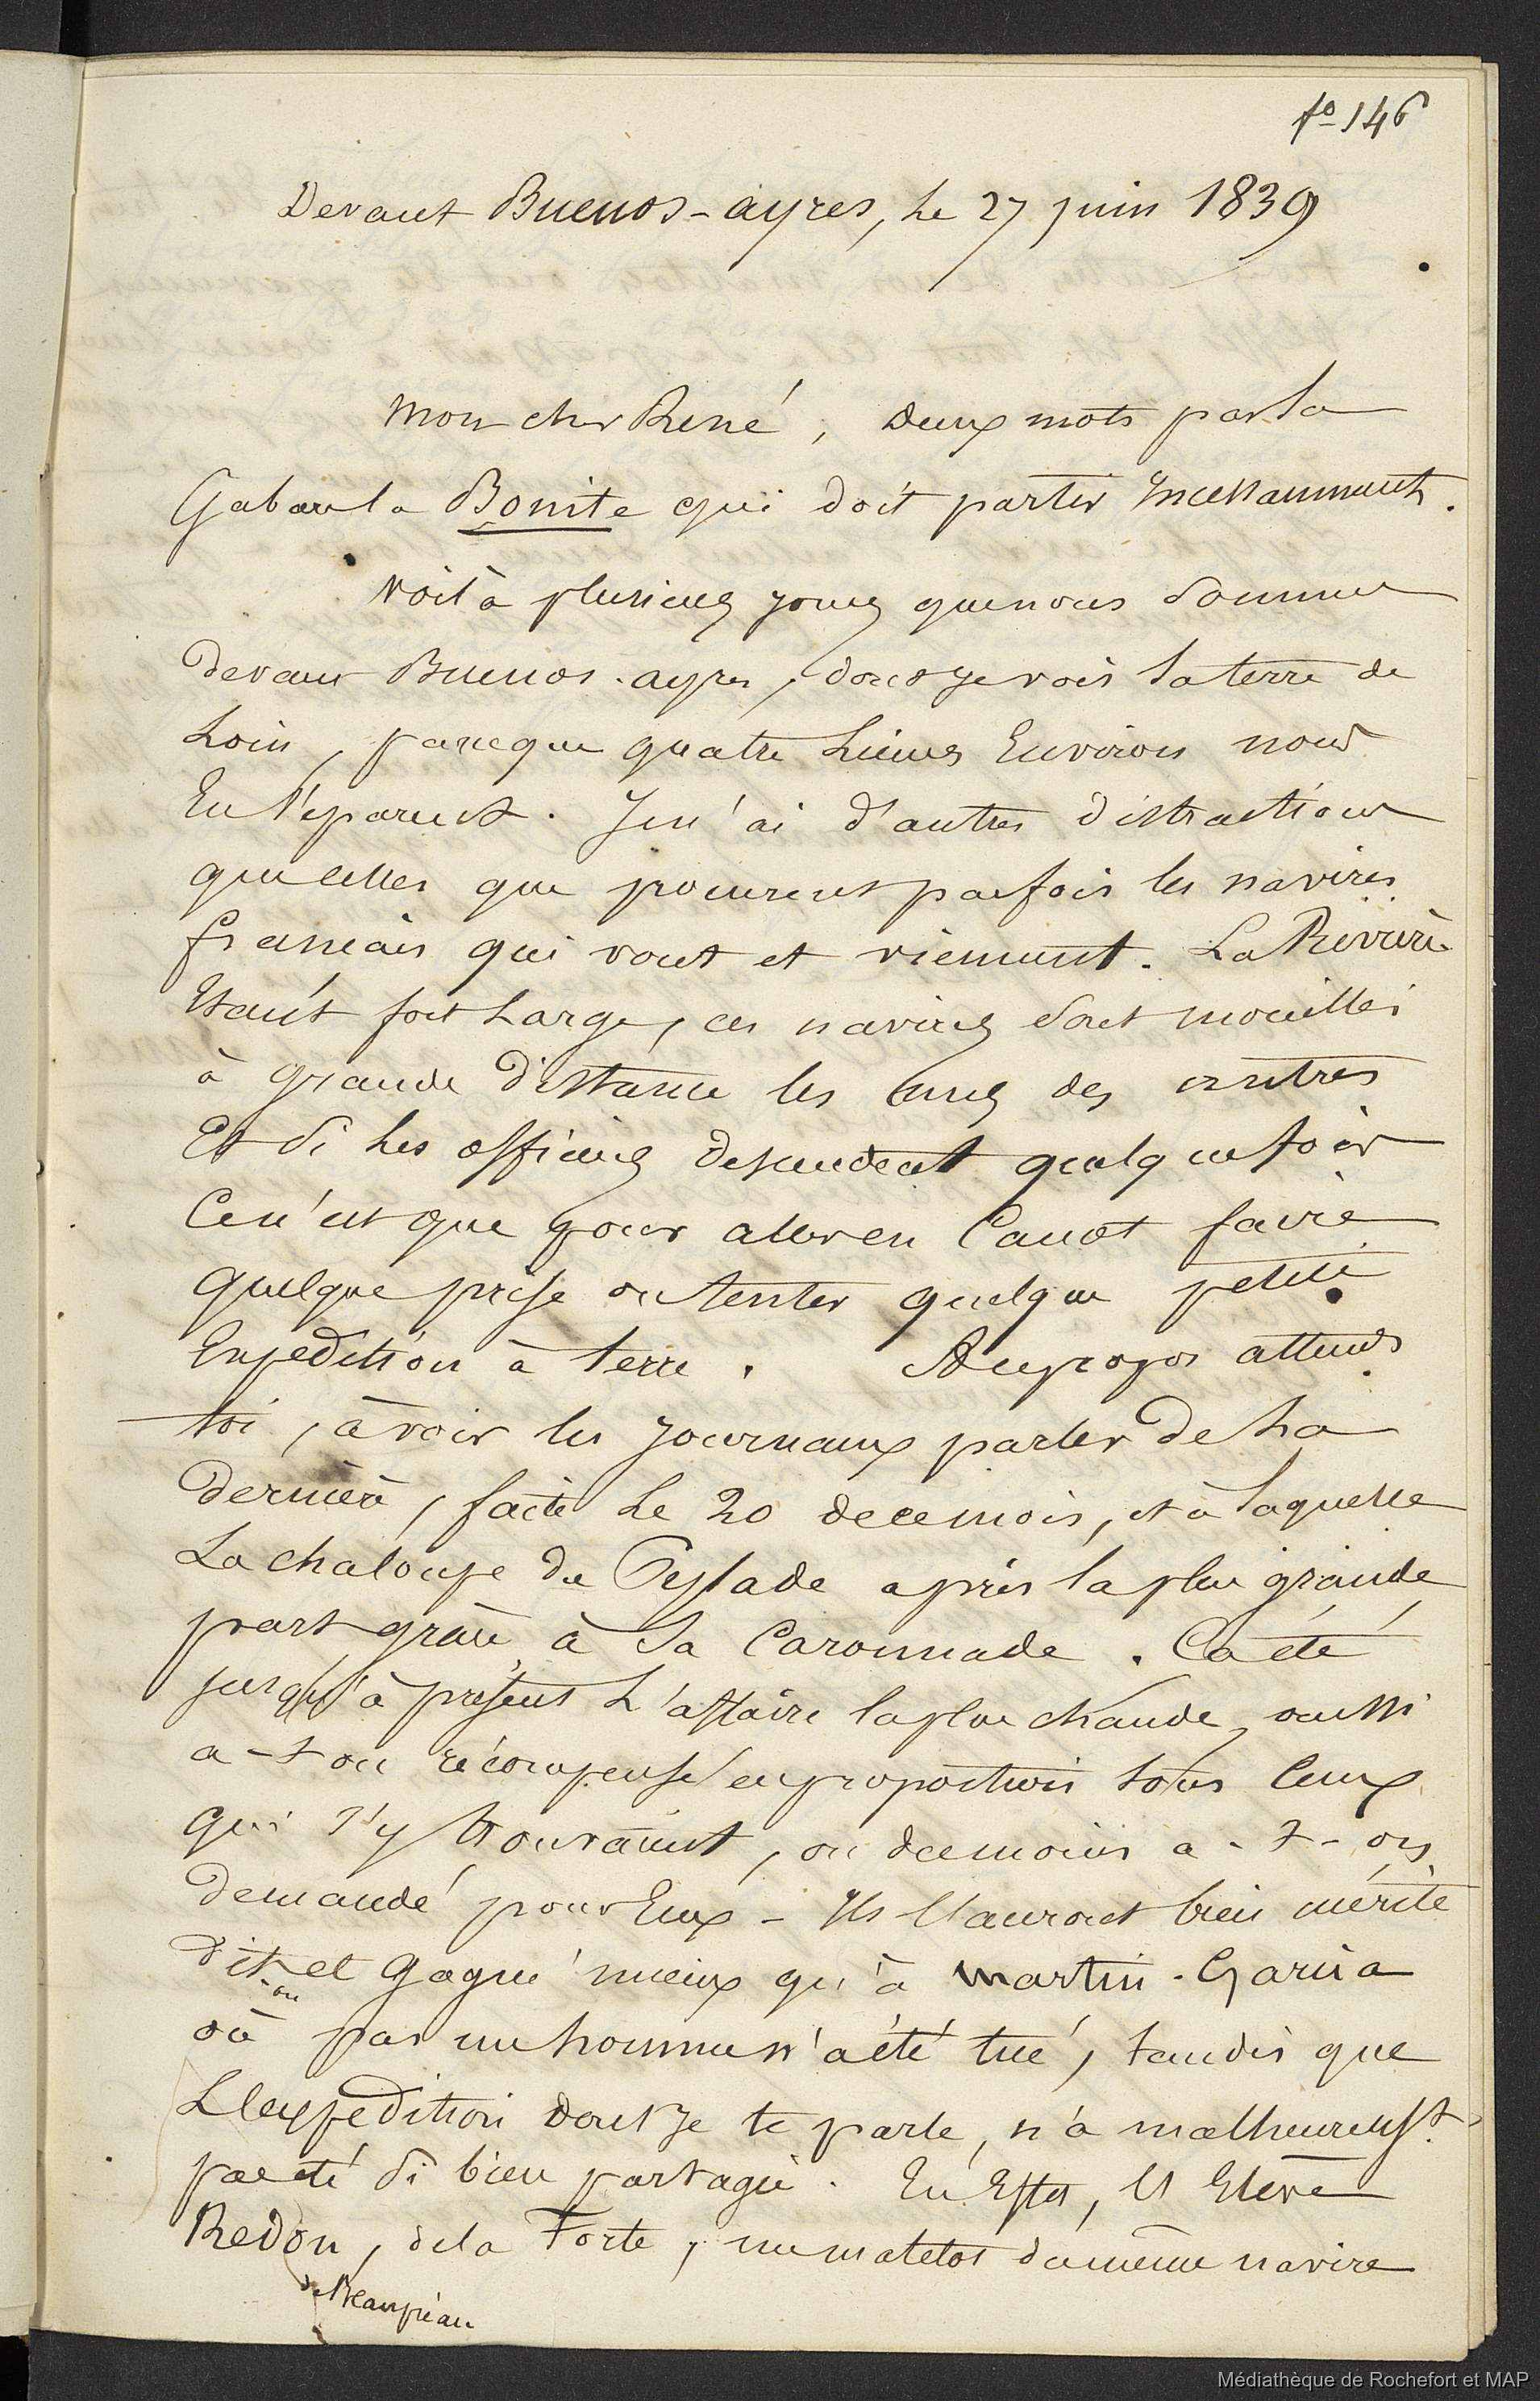 fo 146
Devant Buenos-ayres, le 27 juin 1839
Mon cher René, deux mots par la
Gabare la Bonite qui doit partir Incessamment.
Voilà plusieurs jours que nous sommes
devant Buenos-ayres, dont je vois la terre de
loin, parceque quatre lieues Environ nous
En séparent. Je n'ai d'autres distractions
que celles que procurent parfois les navires
français qui vont et viennent. La Rivière
Etant fort large, ces navires sont mouillés
à grande distance les uns des autres
Et si les officiers descendent quelquefois
Ce n'est que pour aller en Canot faire
quelque prise ou tenter quelque petite
Expédition à terre. A ce propos attends
toi, à voir les journaux parler de la
dernière, faite le 20 de ce mois, et à laquelle
La chaloupe du Pylade a pris la plus grande
part grâce à sa Caronnade. Ca été
jusqu'à présent L'affaire la plus chaude, aussi
a-t-on récompensé en proportion tous Ceux
qui s'y trouvaient, ou du moins a-t-on
demandé pour Eux - Ils l'auront bien mérité
dit-on et gagné mieux qu'à Martin-Garcia
où pas un homme n'a été tué, tandis que
L'expédition dont je te parle, n'a malheureust.
pas été si bien partagée. En Effet, Un Elève
Redon, de la Forte, un matelot du même navire
de Beaupréau
Médiathèque de Rochefort et MAP